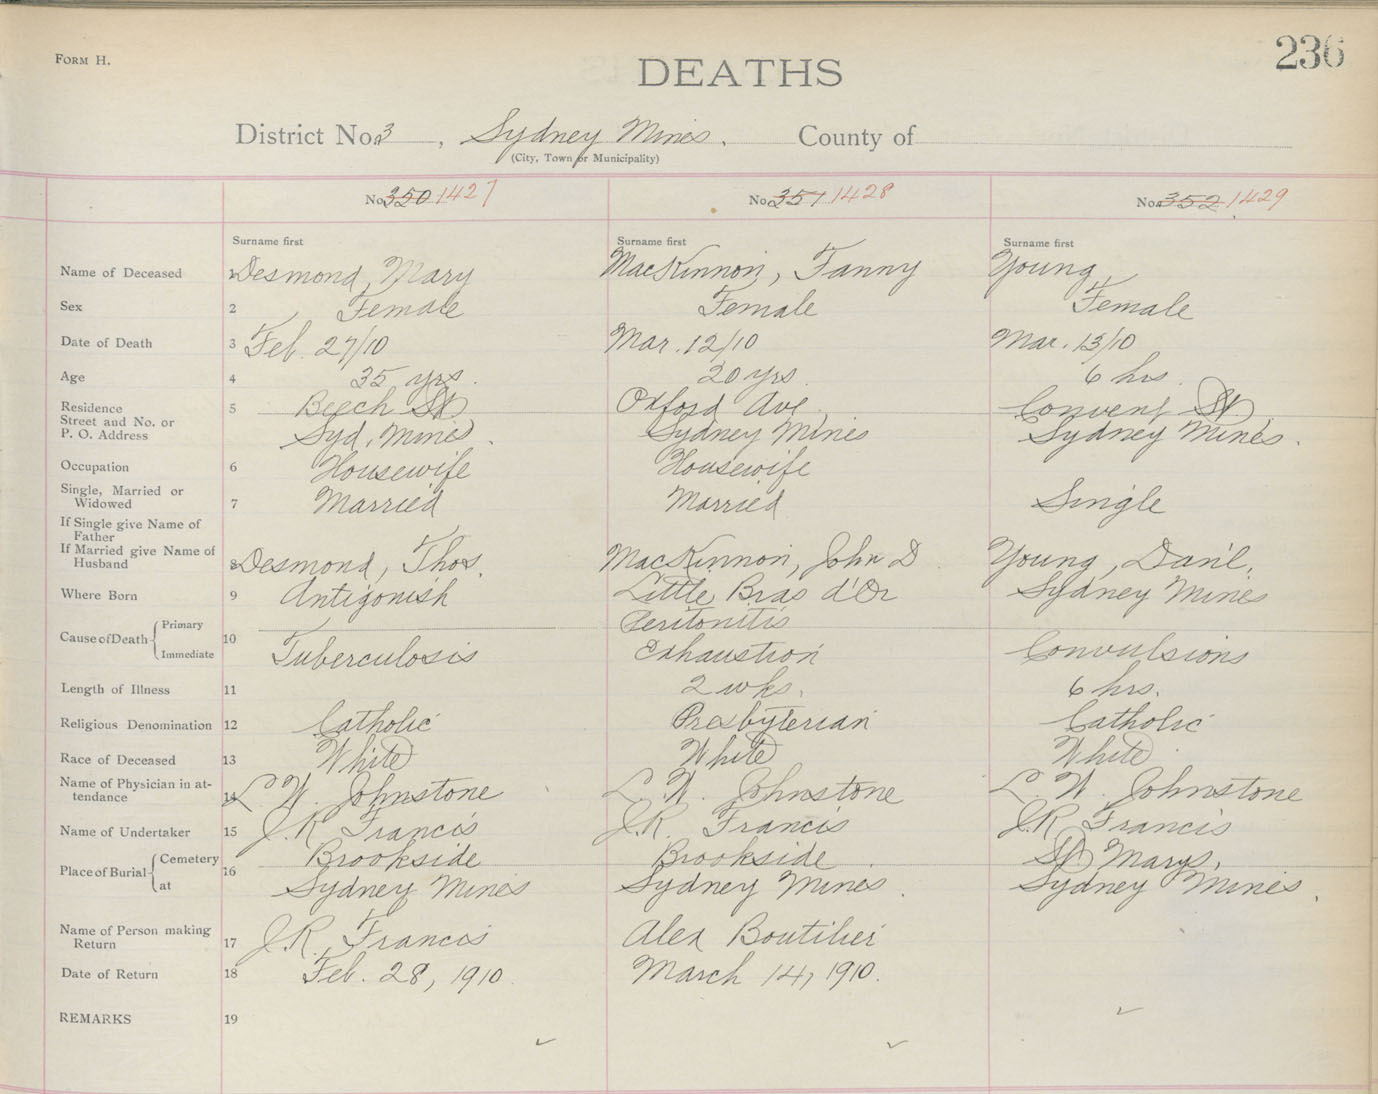 Form H.
DEATHS
236
District No. 3, Sydney Mines. County of
(City, Town or Municipality)
No. 350 1427
No. 351 1428
No. 352 1429
Surname first
Surname first
Surname first
Name of Deceased 1 Desmond, Mary
MacKinnon, Fanny
Young,
Sex 2 Female
Female
Female
Date of Death 3 Feb. 27/10
Mar. 12/10
Mar. 13/10
Age 4 35 yrs.
20 yrs
6 hrs.
Residence
Street and No. or
P. O. Address
5 Beech St
Syd. Mines.
Oxford Ave,
Sydney Mines
Convent St,
Sydney Mines.
Occupation 6 Housewife
Housewife
Single, Married or
Widowed 7 Married
Married
Single
If Single give Name of
Father
If Married give Name of
Husband 8 Desmond, Thos.
MacKinnon, John D.
Young, Dan'l.
Where Born 9 Antigonish
Little Bras d'Or
Sydney Mines
Cause of Death Primary
Immediate
10 Tuberculosis
Peritonitis
Exhaustion
Convulsions
Length of Illness 11
2 wks.
6 hrs.
Religious Denomination 12 Catholic
Presbyterian
Catholic
Race of Deceased 13 White
White
White
Name of Physician in at-
tendance 14 L. W. Johnstone
L. W. Johnstone
L. W. Johnstone
Name of Undertaker 15 J.R. Francis
J.R. Francis
J.R. Francis
Place of Burial Cemetery
at
16 Brookside
Sydney Mines
Brookside.
Sydney Mines.
St Marys,
Sydney Mines.
Name of Person making
Return 17 J.R. Francis
Alex Boutilier
Date of Return 18 Feb. 28, 1910.
March 14, 1910.
REMARKS 19